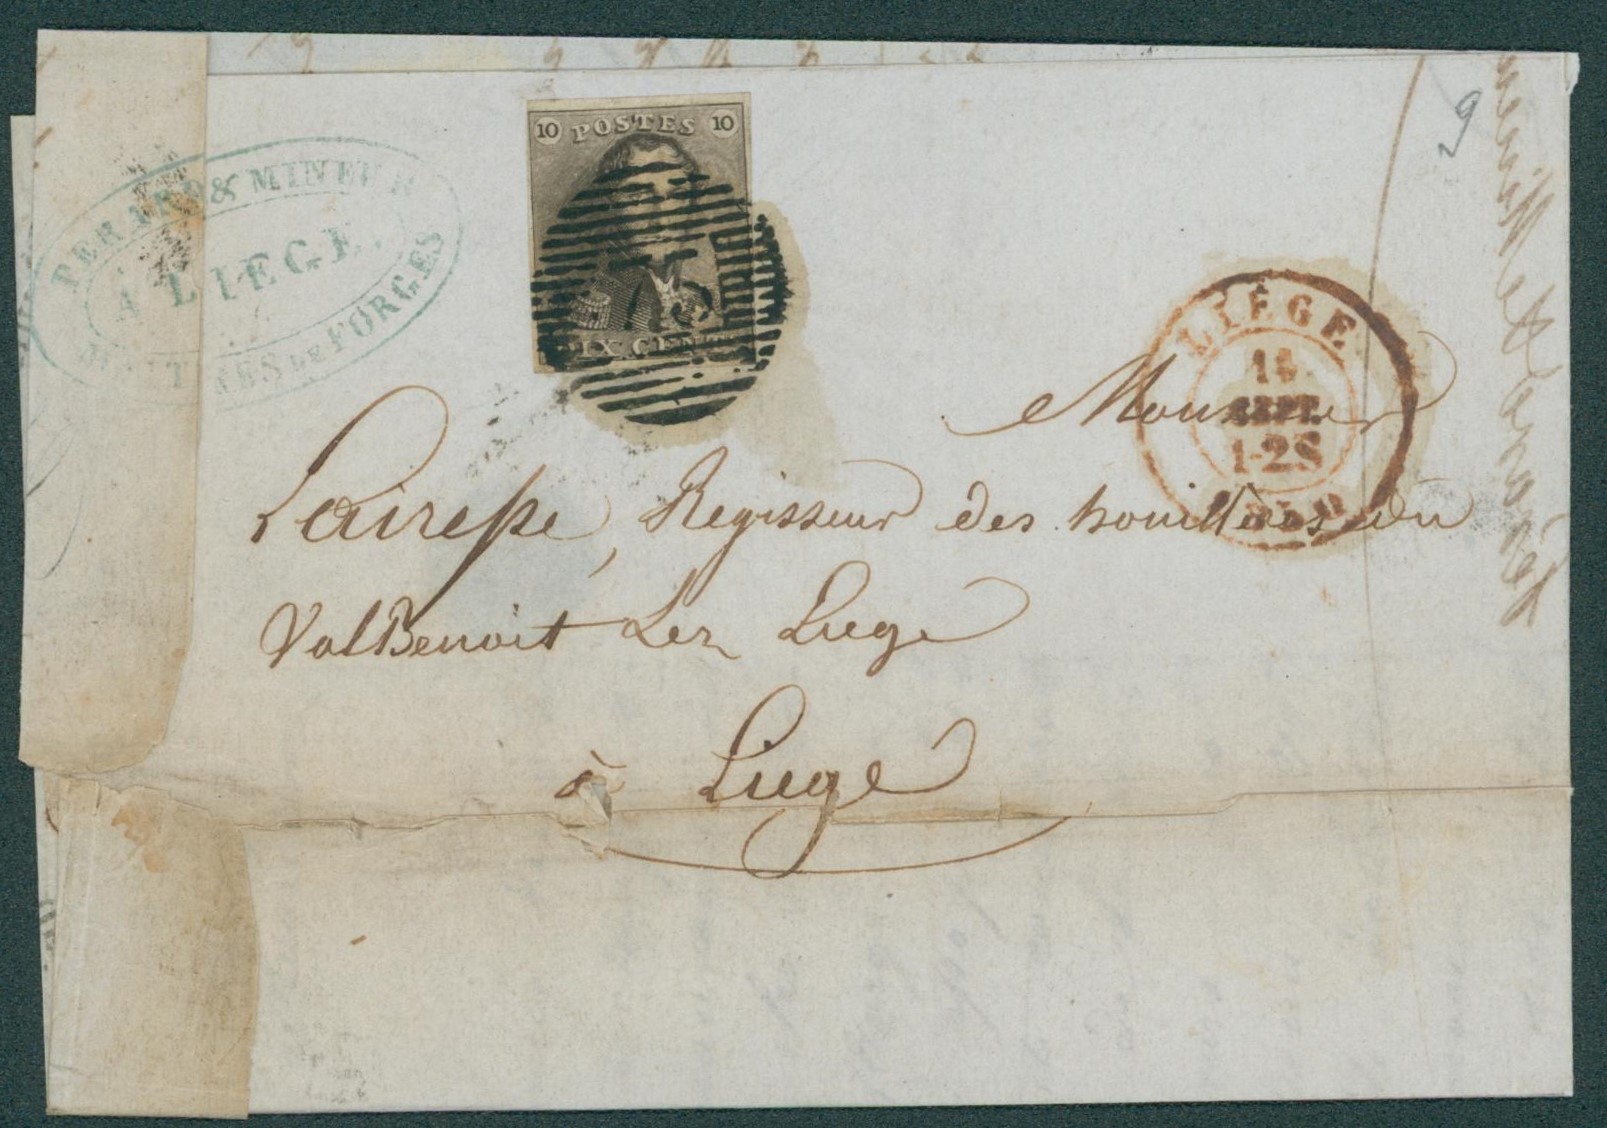 10 POSTES 10
DIX CENT
73
PERARD & MINEUR
A LIEGE.
MAITRES DE FORGES
LIÈGE.
14
SEPT.
1-2S
9
Monsieur
Lairesse, Regisseur des houillères du
ValBenoit Lez Liege
à Liege